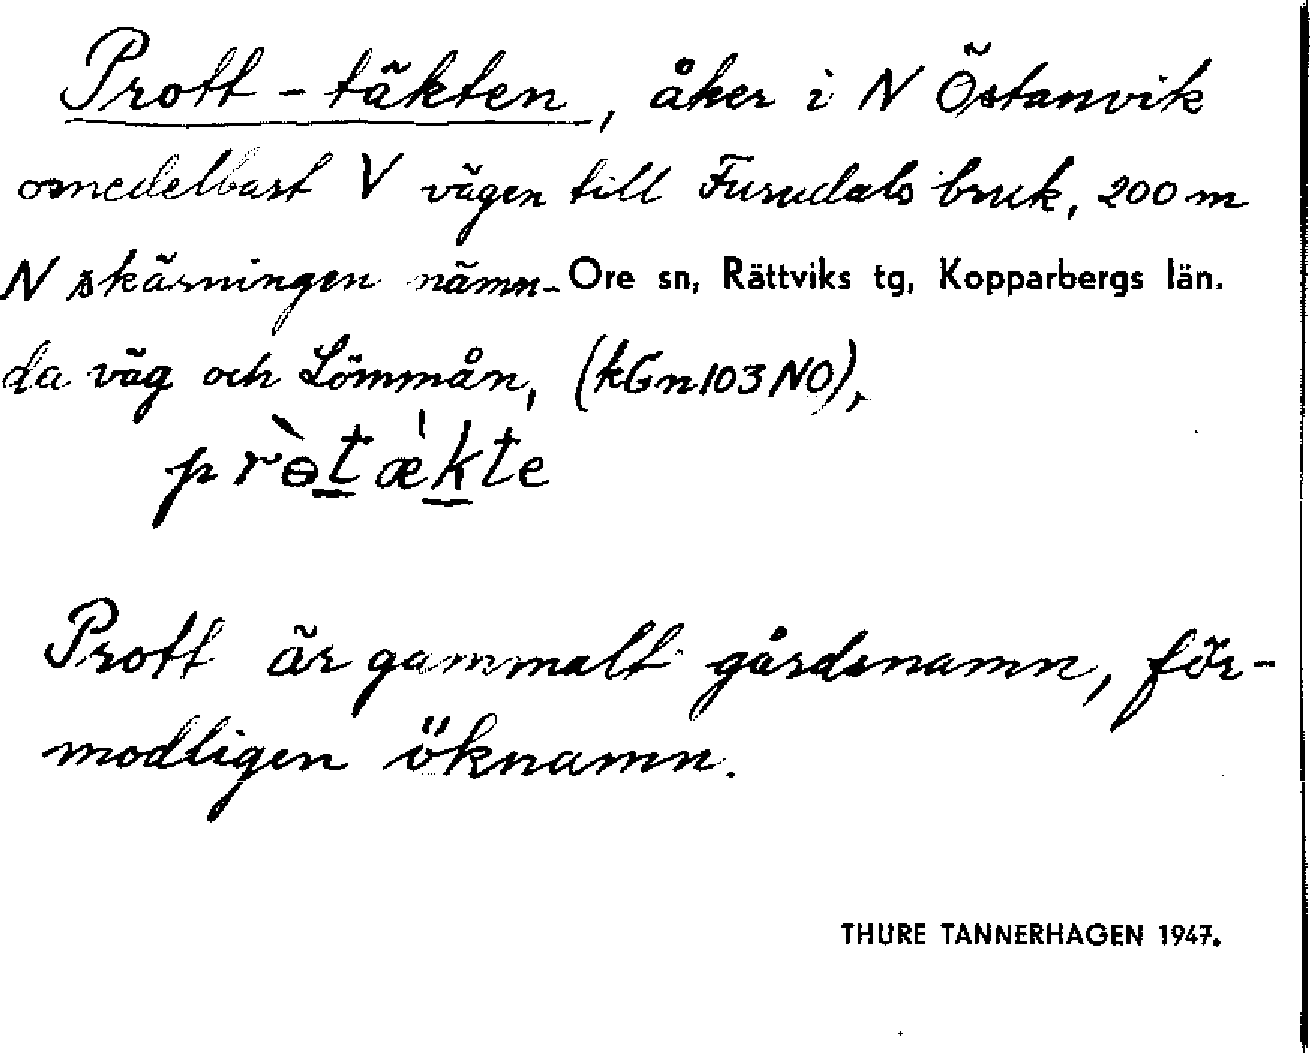 Prott-täkten, åker i N Östanvik
omedelbart V vägen till Furudals bruk, 200 m
N skärningen nämn- Ore sn, Rättviks tg, Kopparbergs län.
da väg och Lömmån, (kGn103NO),
prɵ̀tæ̍kte
Prott är gammalt gårdsnamn, för-
modligen öknamn.
THURE TANNERHAGEN 1947.